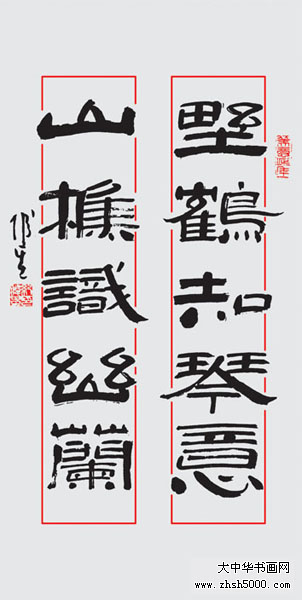 野鶴知琴意
山樵識幽蘭
大中华书画网
www.zhsh5000.com